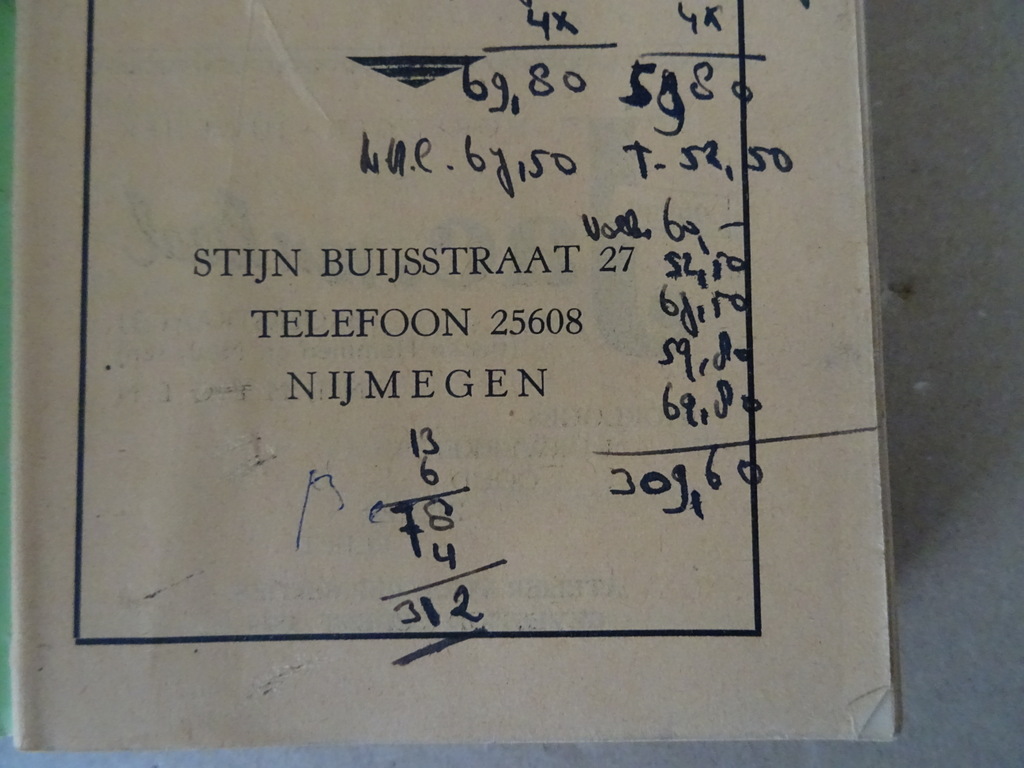 4x 4x
69,80 59 80
67,50 T. 52,50
60,-
STIJN BUIJSSTRAAT 27
52,50
67,50
TELEFOON 25608
59,80
NIJMEGEN
69,80
13
6
309,60
78
4
312